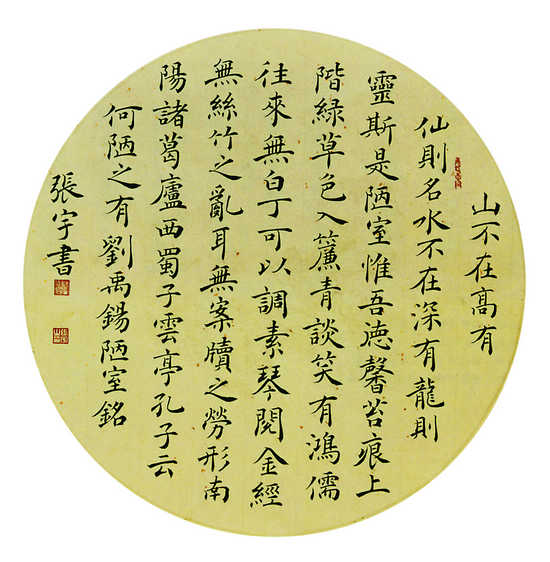 山不在高有
仙則名水不在深有龍則
靈斯是陋室惟吾德馨苔痕上
階緑草色入簾青談笑有鴻儒
往來無白丁可以調素琴閱金經
無絲竹之亂耳無案牘之勞形南
陽諸葛廬西蜀子雲亭孔子云
何陋之有劉禹錫陋室銘
張宇書